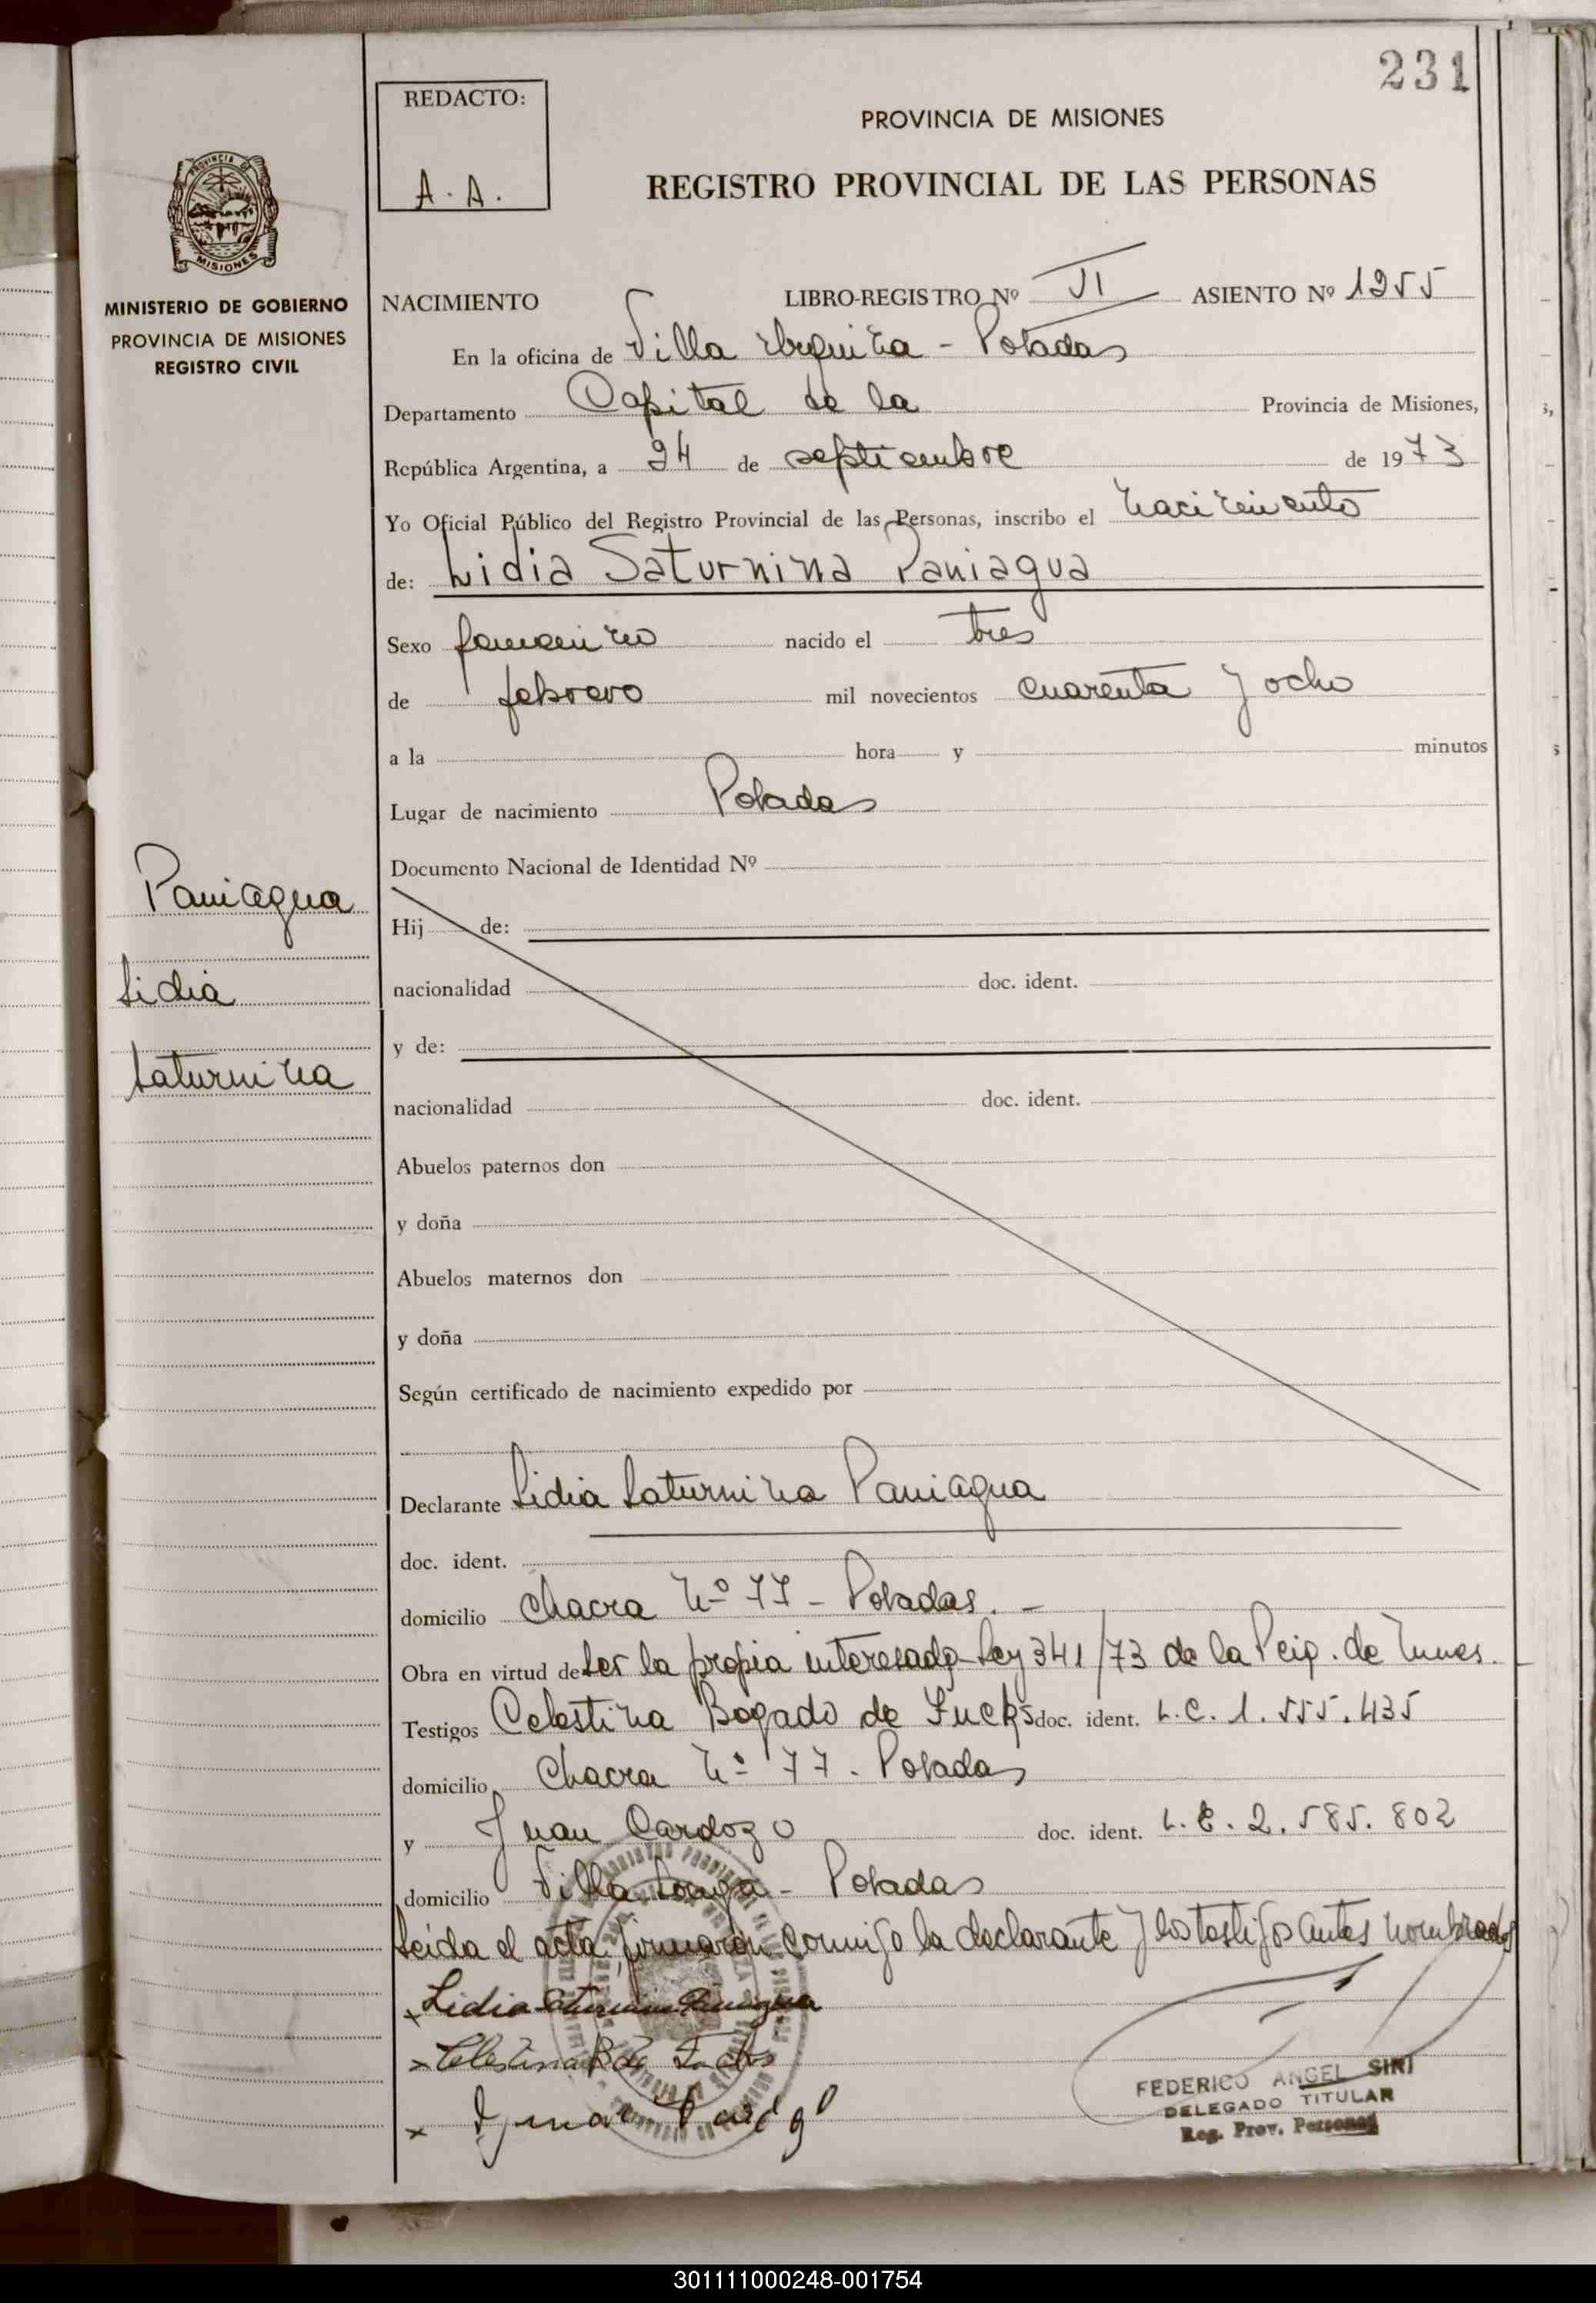 231
REDACTO:
A. A.
PROVINCIA DE MISIONES
REGISTRO PROVINCIAL DE LAS PERSONAS
PROVINCIA DE
MISIONES
MINISTERIO DE GOBIERNO
PROVINCIA DE MISIONES
REGISTRO CIVIL
NACIMIENTO LIBRO-REGISTRO Nº VI ASIENTO Nº 1255
En la oficina de Villa Urquiza - Posadas
Departamento Capital de la Provincia de Misiones,
República Argentina, a 24 de septiembre de 1973
Yo Oficial Público del Registro Provincial de las Personas, inscribo el nacimiento
de: Lidia Saturnina Paniagua
Sexo femenino nacido el tres
de febrero mil novecientos cuarenta y ocho
a la hora y minutos
Lugar de nacimiento Posadas
Documento Nacional de Identidad Nº
Paniagua
Lidia
Saturnina
Hij de:
nacionalidad doc. ident.
y de:
nacionalidad doc. ident.
Abuelos paternos don
y doña
Abuelos maternos don
y doña
Según certificado de nacimiento expedido por
Declarante Lidia Saturnina Paniagua
doc. ident.
domicilio Chacra Nº 77 - Posadas. -
Obra en virtud de ser la propia interesada Ley 341/73 de la Pcia. de Mnes.
Testigos Celestina Bogado de Fucks doc. ident. L.C. 1.555.435
domicilio Chacra Nº 77. Posadas
y Juan Cardozo doc. ident. L.E. 2.585.802
domicilio Villa - Posadas
Leida el acta, firmaron conmigo la declarante y los testigos antes nombrados
x Lidia Saturnina Paniagua
x Celestina B de Fucks
x
FEDERICO ANGEL SIRI
DELEGADO TITULAR
Reg. Prov. Personas
301111000248-001754